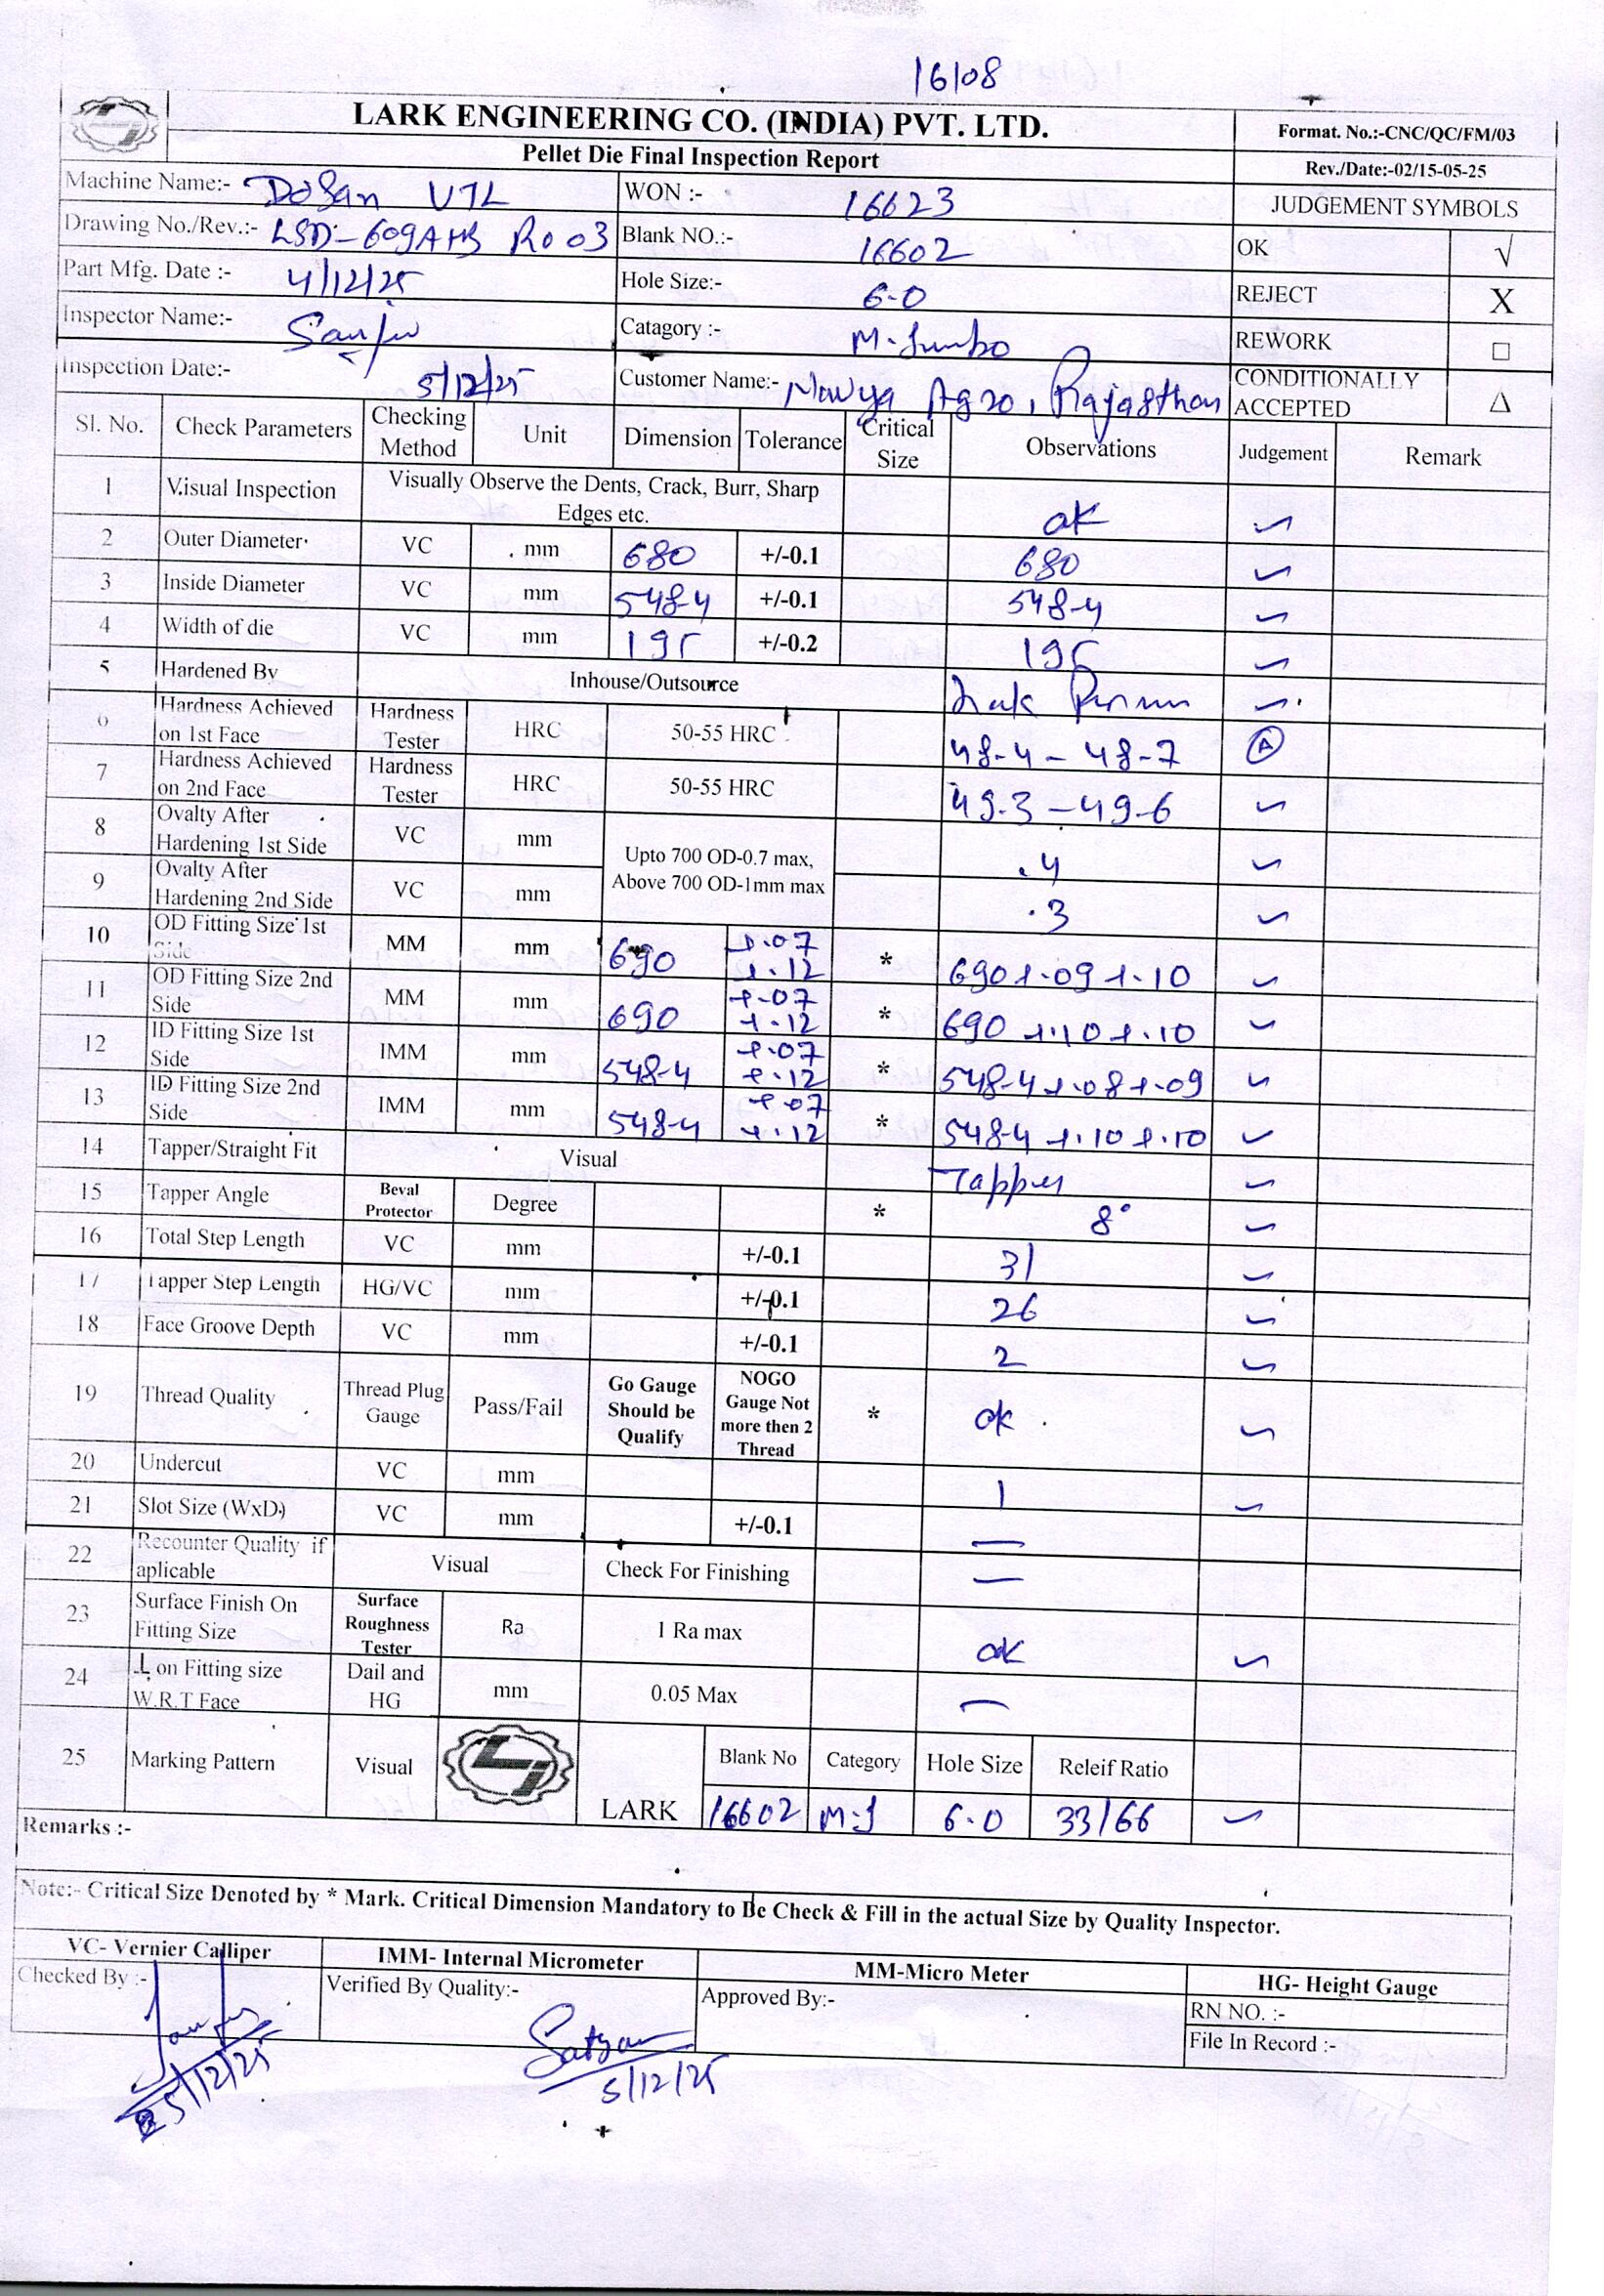 16/08
LARK ENGINEERING CO. (INDIA) PVT. LTD.
Pellet Die Final Inspection Report
Format. No.:-CNC/QC/FM/03
Rev./Date:-02/15-05-25
Machine Name:- DoSan VTL WON :- 16623 JUDGEMENT SYMBOLS
Drawing No./Rev.:- LSD-609AHB R003 Blank NO.:- 16602 OK √
Part Mfg. Date :- 4/12/25 Hole Size:- 6.0 REJECT X
Inspector Name:- Sanju Catagory :- M.Jumbo REWORK □
Inspection Date:- 5/12/25 Customer Name:- Agro, Rajasthan CONDITIONALLY ACCEPTED Δ
Sl. No. Check Parameters Checking Method Unit Dimension Tolerance Critical Size Observations Judgement Remark
1 Visual Inspection Visually Observe the Dents, Crack, Burr, Sharp Edges etc. ok ✓
2 Outer Diameter VC mm 680 +/-0.1 680 ✓
3 Inside Diameter VC mm 548.4 +/-0.1 548.4 ✓
4 Width of die VC mm 195 +/-0.2 195 ✓
5 Hardened By Inhouse/Outsource ✓
6 Hardness Achieved on 1st Face Hardness Tester HRC 50-55 HRC 48.4 - 48.7 A
7 Hardness Achieved on 2nd Face Hardness Tester HRC 50-55 HRC 49.3 - 49.6 ✓
8 Ovalty After Hardening 1st Side VC mm Upto 700 OD-0.7 max, Above 700 OD-1mm max .4 ✓
9 Ovalty After Hardening 2nd Side VC mm .3 ✓
10 OD Fitting Size 1st Side MM mm 690 +.07 +.12 * 690 +.09 +.10 ✓
11 OD Fitting Size 2nd Side MM mm 690 +.07 +.12 * 690 +.10 +.10 ✓
12 ID Fitting Size 1st Side IMM mm 548.4 +.07 +.12 * 548.4 +.08 +.09 ✓
13 ID Fitting Size 2nd Side IMM mm 548.4 +.07 +.12 * 548.4 +.10 +.10 ✓
14 Tapper/Straight Fit Visual Tapper ✓
15 Tapper Angle Beval Protector Degree * 8° ✓
16 Total Step Length VC mm +/-0.1 31 ✓
17 Tapper Step Length HG/VC mm +/-0.1 26 ✓
18 Face Groove Depth VC mm +/-0.1 2 ✓
19 Thread Quality Thread Plug Gauge Pass/Fail Go Gauge Should be Qualify NOGO Gauge Not more then 2 Thread * ok ✓
20 Undercut VC mm 1 ✓
21 Slot Size (WxD) VC mm +/-0.1 —
22 Recounter Quality if aplicable Visual Check For Finishing —
23 Surface Finish On Fitting Size Surface Roughness Tester Ra 1 Ra max ok ✓
24 ⊥ on Fitting size W.R.T Face Dail and HG mm 0.05 Max —
25 Marking Pattern Visual LARK Blank No Category Hole Size Releif Ratio
16602 M.J 6.0 33/66 ✓
Remarks :-
Note:- Critical Size Denoted by * Mark. Critical Dimension Mandatory to Be Check & Fill in the actual Size by Quality Inspector.
VC- Vernier Calliper IMM- Internal Micrometer MM-Micro Meter HG- Height Gauge
Checked By :- Verified By Quality:- Approved By:- RN NO. :-
File In Record :-
Sanju Satyam
5/12/25 5/12/25